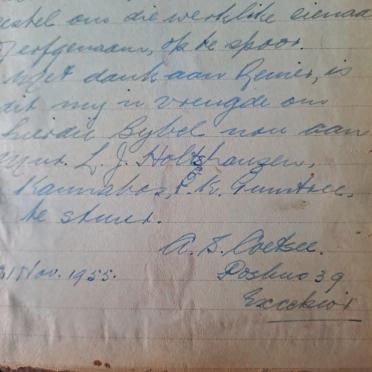 estel om die werklike eienaar
, erfgenaam, op te spoor.
Met dank aan Reinier, is
dit my 'n vreugde om
hierdie Bybel nou aan
Mnr. L. J. Holtshauzen,
Kannabos, P.K. Gumtree,
te stuur.
A. S. Coetsee.
Nov. 1955.
Posbus 39
Excelsior